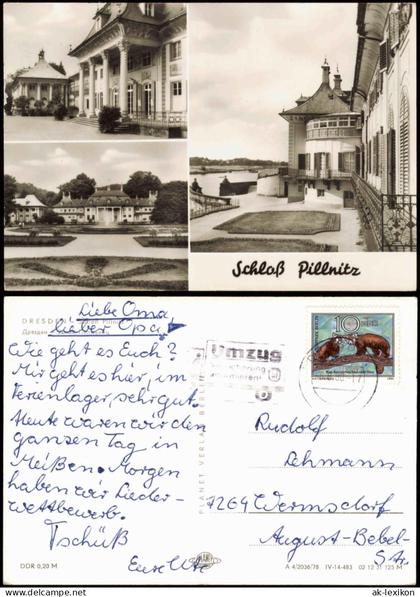 Schloß Pillnitz
DRESDEN
Dresden
Liebe Oma,
lieber Opa,
Wie geht es Euch?
Mir geht es hier, im
Ferienlager, sehr gut.
Heute waren wir den
ganzen Tag in
Meißen. Morgen
haben wir Lieder-
wettbewerb.
Tschüß
Eure Ute
PLANET VERLAG BERLIN
Umzug
10
Rudolf
Lehmann
7264 Wermsdorf
August-Bebel-
Str.
DDR 0,20 M
A 4/2036/78 IV-14-483 02 12 31 125 M
www.ak-ansichtskarten.de
ak-lexikon